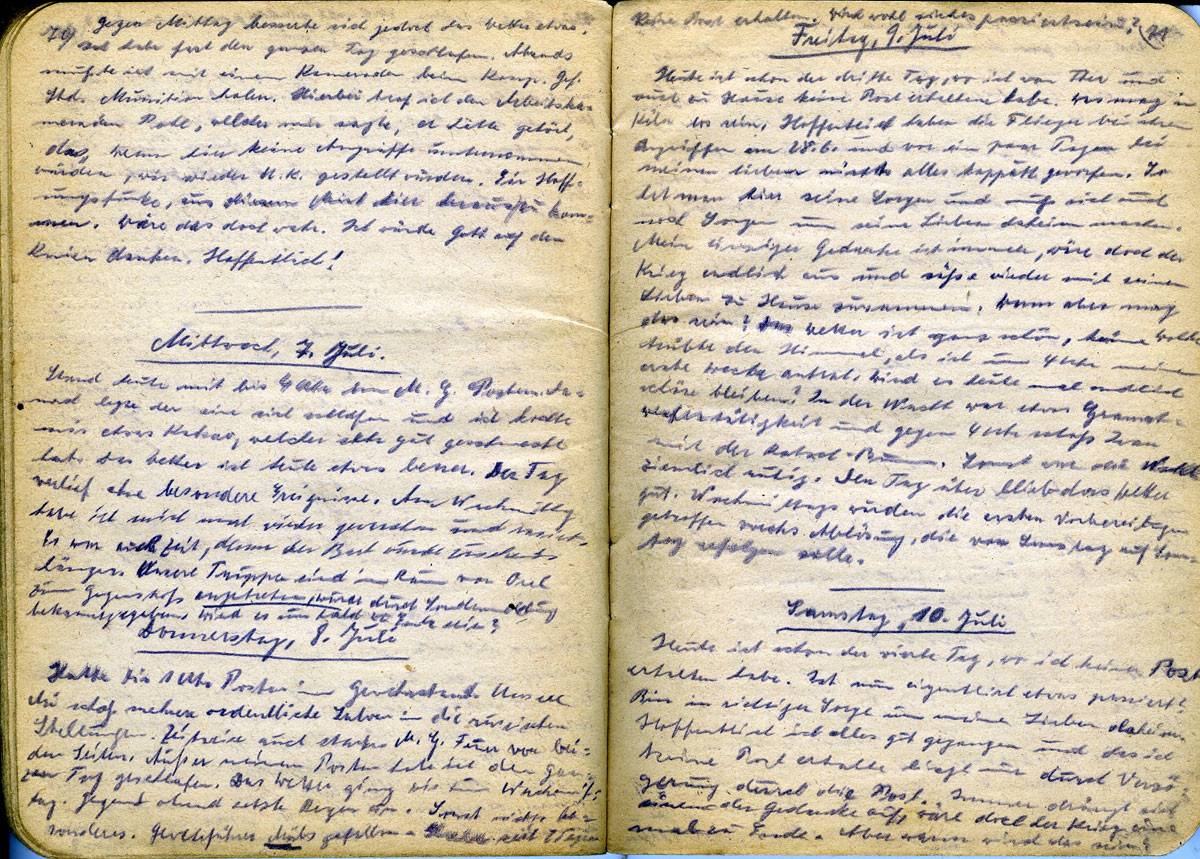 70) Gegen Mittag besserte sich jedoch das Wetter etwas.
Ich habe fast den ganzen Tag geschlafen. Abends
mußte ich mit einem Kameraden beim Komp. Gef.
Std. Munition holen. Hierbei traf ich den Arbeitska-
meraden Pohl, welcher mir sagte, er hätte gehört,
das, wenn hier keine Angriffe unternommen
würden, wir wieder U.K. gestellt würden. Ein Hoff-
nungsfunke, aus diesem hier herauszu kom-
men. Wäre das doch wahr. Ich würde Gott auf den
Knien danken. Hoffentlich!
Mittwoch, 7. Juli.
Stand heute mit bis 4 Uhr am M. G. Posten. Da-
nach legte der eine sich schlafen und ich kochte
mir etwas Kakao, welcher sehr gut geschmeckt
hat. Das Wetter ist heute etwas besser. Der Tag
verlief ohne besondere Ereignisse. Am Nachmittag
habe ich mich mal wieder gewaschen und rasiert.
Es war auch Zeit, denn der Bart wurde zusehends
länger. Unsere Truppen sind im Raum von Orel
zum Gegenstoß angetreten, wurde durch Sondermeldung
bekanntgegeben. Wird es nun bald zu Ende sein?
Donnerstag, 8. Juli
Hatte bis 1 Uhr Posten im Gewehrstand. Unsere
Ari schoß mehrere ordentliche Salven in die russischen
Stellungen. Zeitweise auch starkes M. G. Feuer von bei-
den Seiten. Außer meinem Posten habe ich den gan-
zen Tag geschlafen. Das Wetter ging bis zum Nachmit-
tag. Gegen Abend setzte Regen ein. Sonst nichts be-
sonderes. Gewehrführer gefallen. seit 2 Tagen
keine Post erhalten. Wird wohl nichts passiert sein? 71
Freitag, 9. Juli
Heute ist schon der dritte Tag, wo ich von Ther und
auch zu Hause keine Post erhalten habe. Was mag in
Köln los sein. Hoffentlich haben die Flieger bei ihren
Angriffen am 28.6. und vor ein paar Tagen bei
meinen Lieben nichts alles kaputt geworfen. So
hat man hier seine Sorgen und muß sich auch
noch Sorgen um seine Lieben daheim machen.
Mein einziger Gedanke ist immer, wäre doch der
Krieg endlich aus und säße wieder mit seinen
Lieben zu Hause zusammen. Wann aber mag
das sein? Das Wetter ist ganz schön, keine Wolke
trübte den Himmel, als ich um 4 Uhr meine
erste Wache antrat. Wird es heute mal endlich
schön bleiben? In der Nacht war etwas Granat-
werfertätigkeit und gegen 4 Uhr schoß Iwan
mit der Ratsch-Bumm. Sonst war die Nacht
ziemlich ruhig. Den Tag über blieb das Wetter
gut. Nachmittags wurden die ersten Vorbereitungen
getroffen zwecks Ablösung, die von Samstag auf Sonn-
tag erfolgen sollte.
Samstag, 10. Juli
Heute ist schon der vierte Tag, wo ich keine Post
erhalten habe. Ist nun eigentlich etwas passiert?
Bin in richtiger Sorge um meine Lieben daheim.
Hoffentlich ist alles gut gegangen und das ich
keine Post erhalte liegt nur durch Verzö-
gerung durch die Post. Immer drängt sich
einem der Gedanke auf, wäre doch der Krieg ein-
mal zu Ende. Aber wann wird das sein?